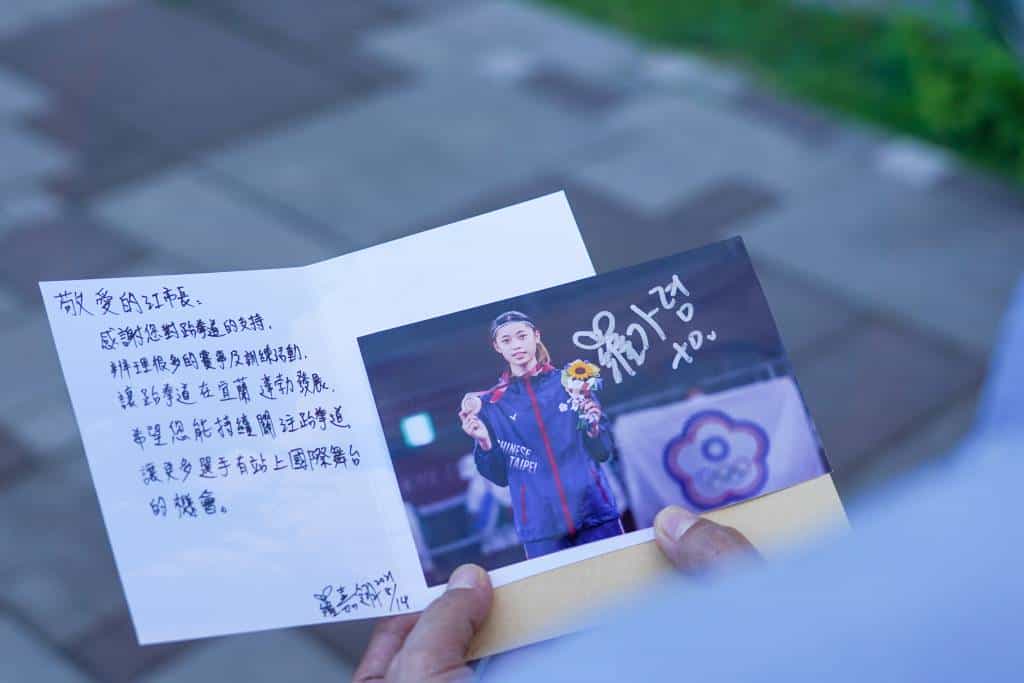 敬愛的江市長：
感謝您對跆拳道的支持，
辦理很多的賽事及訓練活動，
讓跆拳道在宜蘭蓬勃發展，
希望您能持續關注跆拳道，
讓更多選手有站上國際舞台
的機會。
羅嘉翎 2021
8/14
CHINESE
TAIPEI